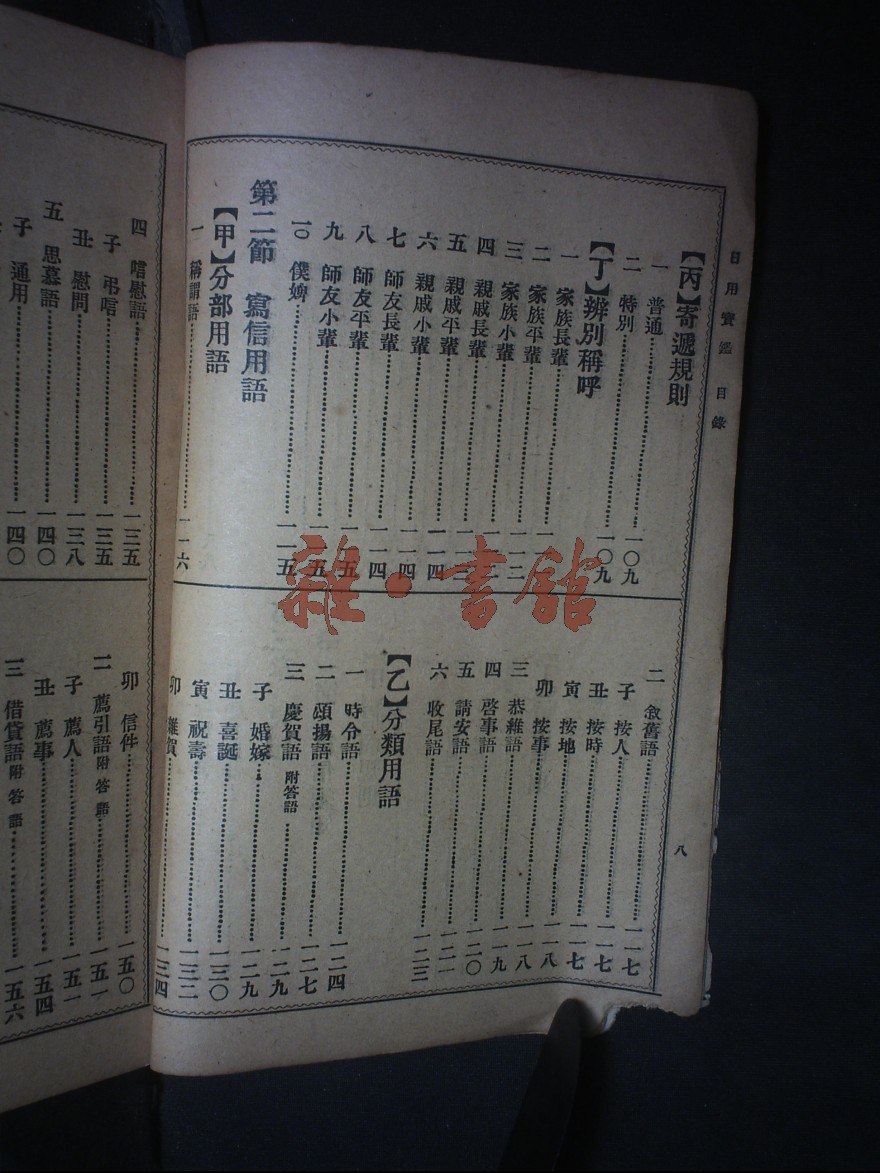 日用寶鑑 目錄
八
【丙】寄遞規則
一 普通……一〇九
二 特別……一〇九
【丁】辨別稱呼
一 家族長輩……一一
二 家族平輩……一一三
三 家族小輩……一一
四 親戚長輩……一一
五 親戚平輩……一一四
六 親戚小輩……一一四
七 師友長輩……一一四
八 師友平輩……一一五
九 師友小輩……一一五
一〇 僕婢……一一五
第二節 寫信用語
【甲】分部用語
一 稱謂語……一一六
二 敘舊語
子 按人……一一七
丑 按時……一一七
寅 按地……一一七
卯 按事……一一八
三 恭維語……一一八
四 啓事語……一一九
五 請安語……一二〇
六 收尾語……一二三
【乙】分類用語
一 時令語……一二四
二 頌揚語……一二七
三 慶賀語 附答語……一二九
子 婚嫁……一二九
丑 喜誕……一三〇
寅 祝壽……一三二
卯 雜賀……一三四
四 唁慰語……一三五
子 弔唁……一三五
丑 慰問……一三八
五 思慕語……一四〇
子 通用……一四〇
卯 信件……一五〇
二 薦引語 附答語……一五一
子 薦人……一五一
丑 薦事……一五四
三 借貸語 附答語……一五六
雜·書館